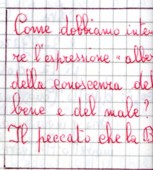 Come dobbiamo inte
re l'espressione "albe
della conoscenza del
bene e del male?
Il peccato che la B